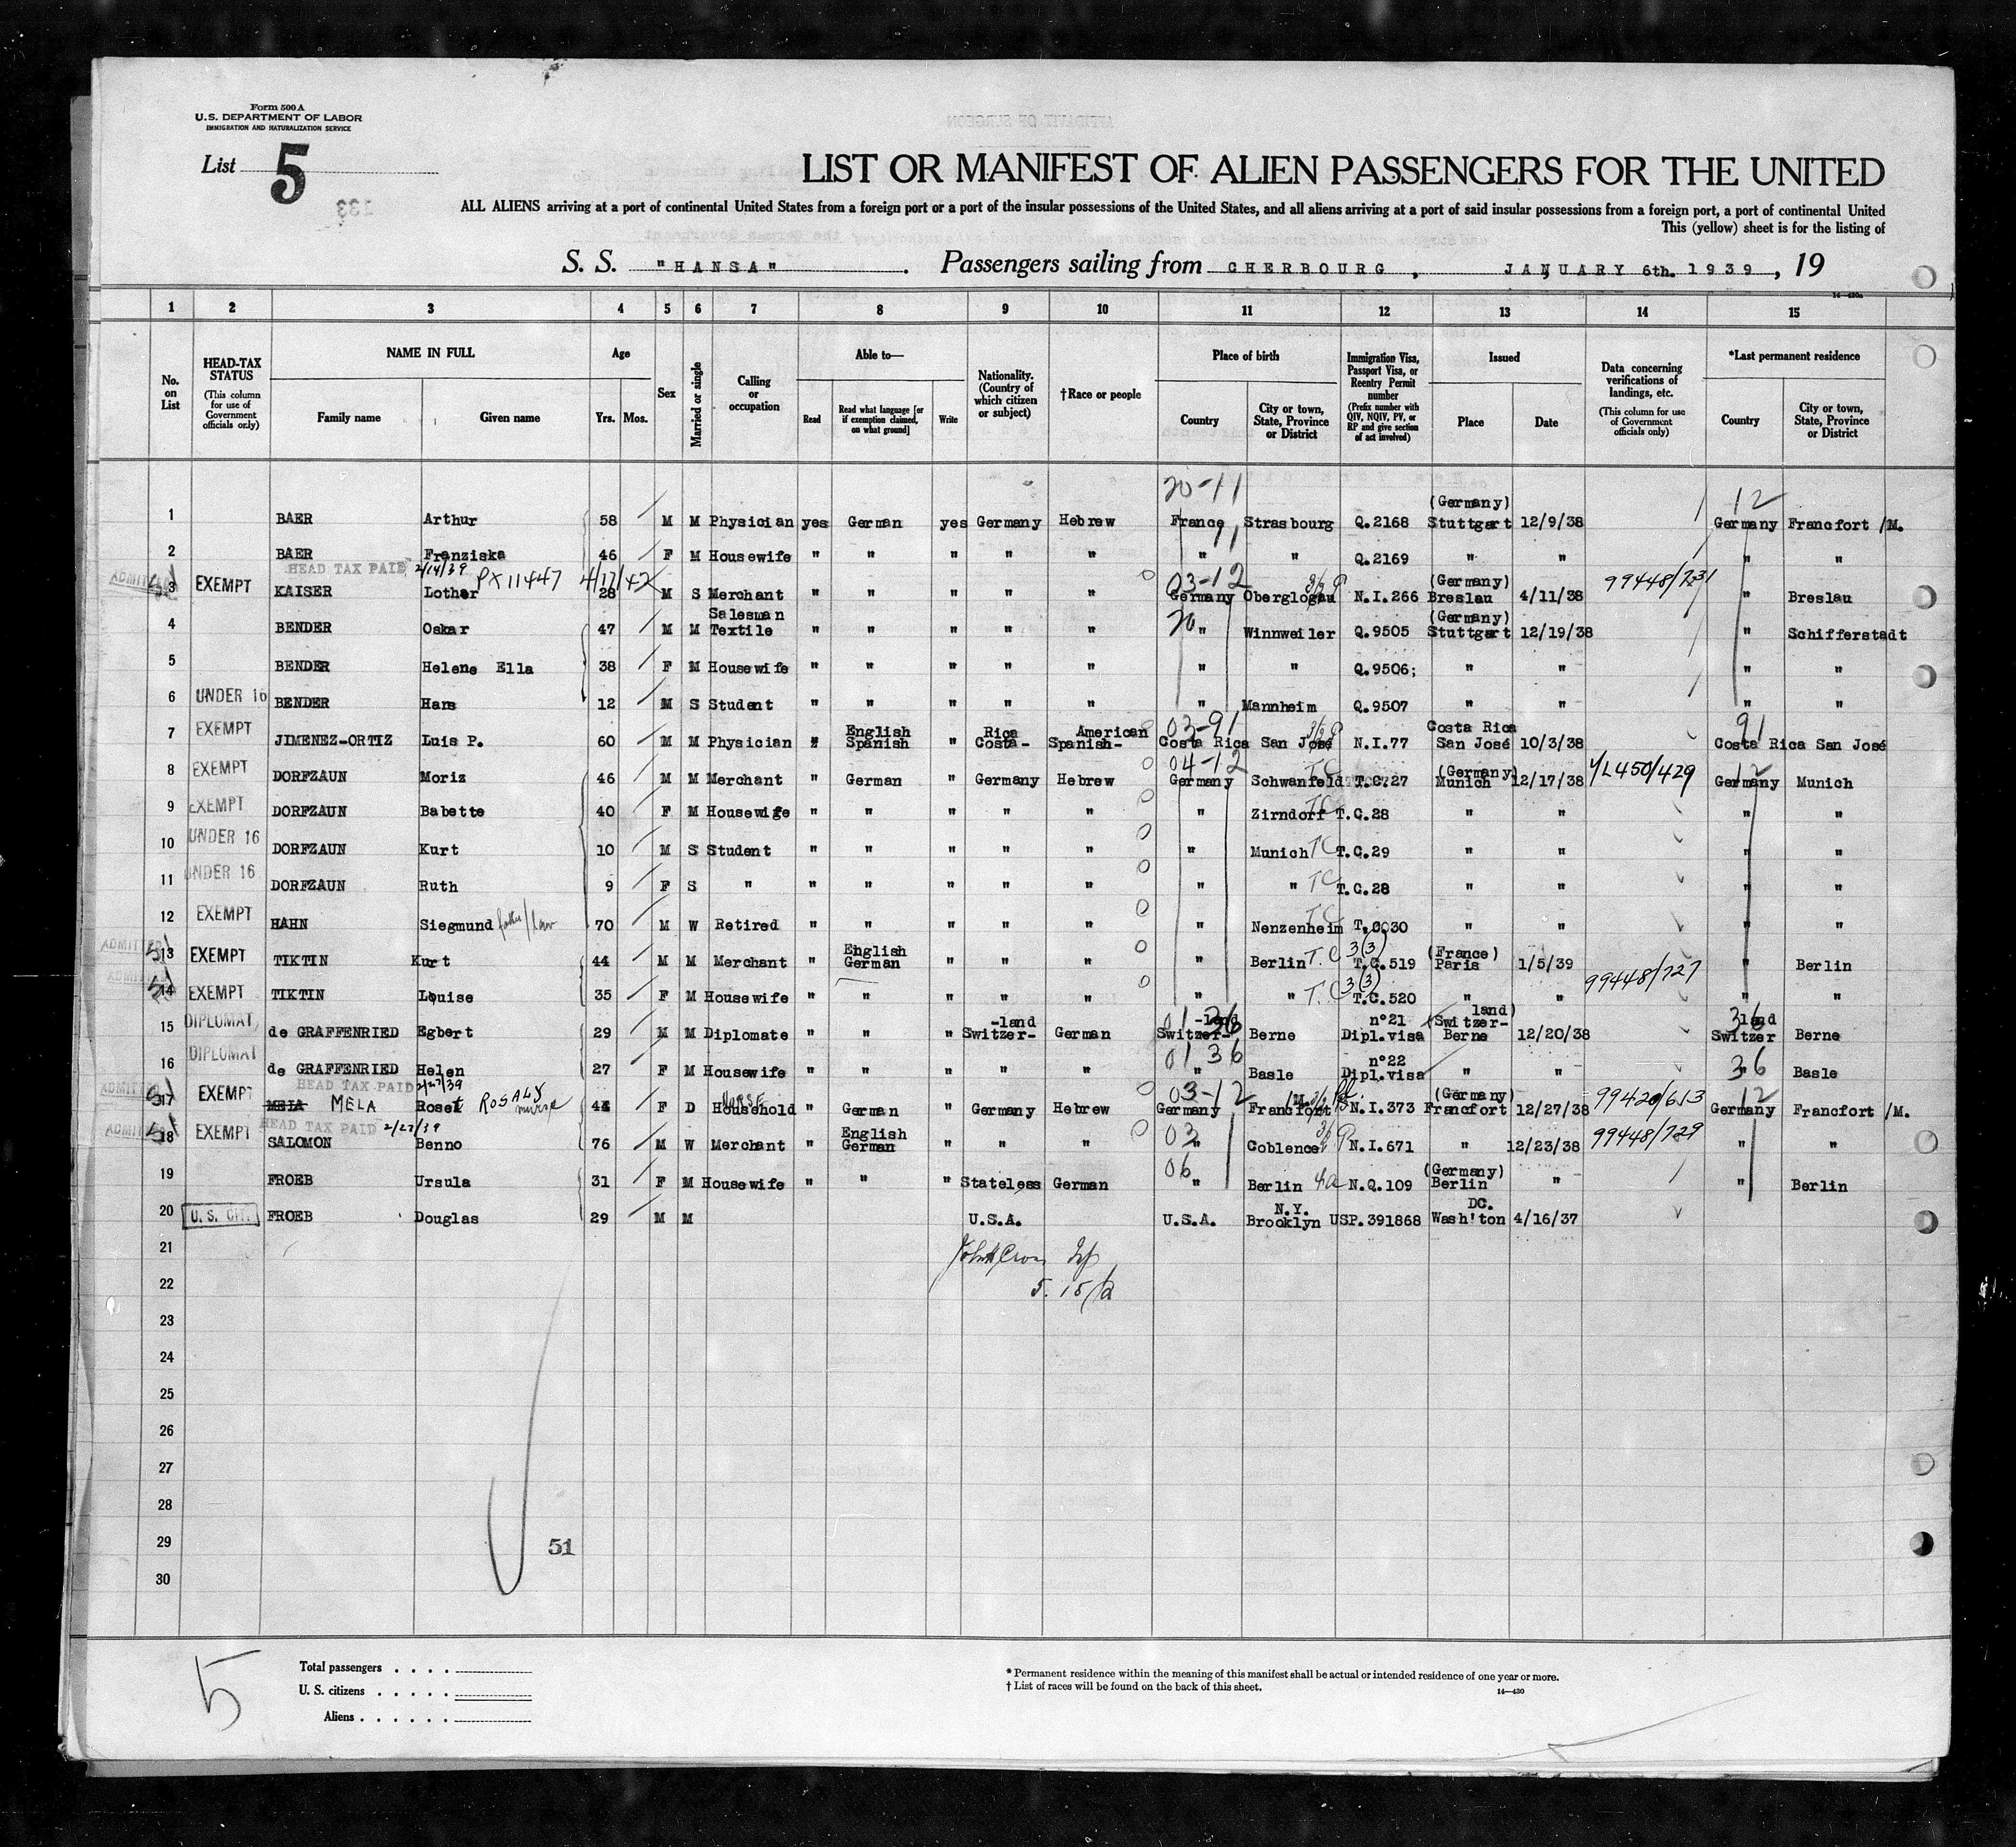 Form 500 A
U.S. DEPARTMENT OF LABOR
IMMIGRATION AND NATURALIZATION SERVICE
List 5
LIST OR MANIFEST OF ALIEN PASSENGERS FOR THE UNITED
ALL ALIENS arriving at a port of continental United States from a foreign port or a port of the insular possessions of the United States, and all aliens arriving at a port of said insular possessions from a foreign port, a port of continental United
This (yellow) sheet is for the listing of
S. S. "HANSA". Passengers sailing from CHERBOURG, JANUARY 6th. 1939, 19
1 2 3 4 5 6 7 8 9 10 11 12 13 14 15
No. on List
HEAD-TAX STATUS (This column for use of Government officials only)
NAME IN FULL Family name Given name
Age Yrs. Mos.
Sex
Married or single
Calling or occupation
Able to— Read Read what language [or if exemption claimed, on what ground] Write
Nationality. (Country of which citizen or subject)
†Race or people
Place of birth Country City or town, State, Province or District
Immigration Visa, Passport Visa, or Reentry Permit number (Prefix number with QIV, NQIV, PV, or RP and give section of act involved)
Issued Place Date
Data concerning verifications of landings, etc. (This column for use of Government officials only)
*Last permanent residence Country City or town, State, Province or District
20-11 12
1 BAER Arthur 58 M M Physician yes German yes Germany Hebrew France Strasbourg Q.2168 (Germany) Stuttgart 12/9/38 Germany Francfort /M.
2 BAER Franziska 46 F M Housewife " " " " " 11 " " Q.2169 " " " "
HEAD TAX PAID 2/14/39 PX11447 4/17/42
ADMITTED 3 EXEMPT KAISER Lothar 28 M S Merchant " " " " " 03-12 Germany Oberglogau N.I.266 (Germany) Breslau 4/11/38 99448/731 " Breslau
4 BENDER Oskar 47 M M Salesman Textile " " " " " 20 " Winnweiler Q.9505 (Germany) Stuttgart 12/19/38 " Schifferstadt
5 BENDER Helene Ella 38 F M Housewife " " " " " " " Q.9506; " " " "
6 UNDER 16 BENDER Hans 12 M S Student " " " " " " Mannheim Q.9507 " " " "
7 EXEMPT JIMENEZ-ORTIZ Luis P. 60 M M Physician " English Spanish " Costa-Rica Spanish-American 03-91 Costa Rica San José N.I.77 Costa Rica San José 10/3/38 91 Costa Rica San José
8 EXEMPT DORFZAUN Moriz 46 M M Merchant " German " Germany Hebrew 04-12 Germany Schwanfeld T.C.27 (Germany) Munich 12/17/38 YL450/429 12 Germany Munich
9 EXEMPT DORFZAUN Babette 40 F M Housewife " " " " " " Zirndorf TC T.C.28 " " " "
10 UNDER 16 DORFZAUN Kurt 10 M S Student " " " " " " Munich TC T.C.29 " " " "
11 UNDER 16 DORFZAUN Ruth 9 F S " " " " " " " " TC T.C.28 " " " "
12 EXEMPT HAHN Siegmund father/law 70 M W Retired " " " " " " Nenzenheim TC T.C030 " " " "
ADMITTED 13 EXEMPT TIKTIN Kurt 44 M M Merchant " English German " " " " Berlin T.C 3(3) T.C.519 (France) Paris 1/5/39 " Berlin
14 EXEMPT TIKTIN Louise 35 F M Housewife " " " " " " " T.C 3(3) T.C.520 " " 99448/727 " "
15 DIPLOMAT de GRAFFENRIED Egbert 29 M M Diplomate " " " Switzer-land German 01 36 Switzer-land Berne n°21 Dipl.visa (Switzer-land) Berne 12/20/38 36 Switzer land Berne
16 DIPLOMAT de GRAFFENRIED Helen 27 F M Housewife " " " " " 01 36 " Basle n°22 Dipl.visa " " 36 " Basle
HEAD TAX PAID 2/27/39
ADMITTED 17 EXEMPT MELA MELA Roset ROSALY nurse 44 F D Household NURSE " German " Germany Hebrew 03-12 Germany Francfort /M. N.I.373 (Germany) Francfort 12/27/38 99420/613 12 Germany Francfort /M.
HEAD TAX PAID 2/27/39
ADMITTED 18 EXEMPT SALOMON Benno 76 M W Merchant " English German " " " 03 " Coblence N.I.671 " 12/23/38 99448/729 " "
19 FROEB Ursula 31 F M Housewife " " " Stateless German 06 " Berlin 4a N.Q.109 (Germany) Berlin " " Berlin
20 U.S. CIT. FROEB Douglas 29 M M U.S.A. U.S.A. N.Y. Brooklyn USP.391868 DC. Wash'ton 4/16/37
21
22
23
24
25
26
27
28
29
51
30
5
Total passengers
U. S. citizens
Aliens
* Permanent residence within the meaning of this manifest shall be actual or intended residence of one year or more.
† List of races will be found on the back of this sheet.
14—430